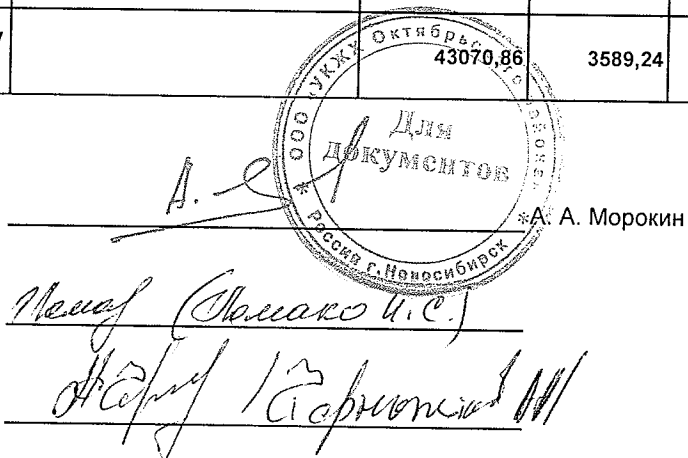 43070,86 3589,24
ООО "УКЖХ Октябрьского района"
Для
документов
* Россия г.Новосибирск *
А. А. Морокин
(Ломако И.С.)